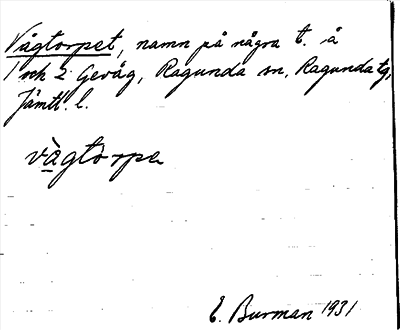 Vågtorpet, namn på några t. å
1 och 2 Gevåg, Ragunda sn, Ragunda tg,
Jämtl. l.
vàgtòrpe
E. Burman 1931